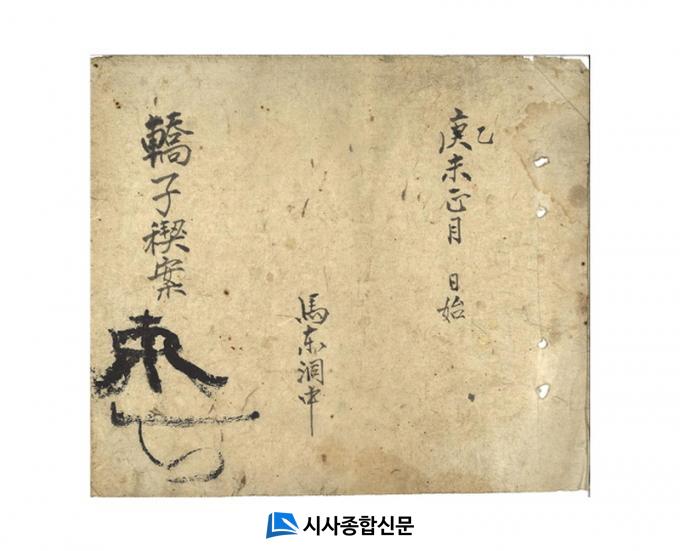 乙
庚未正月 日始
馬東洞中
轎子稧案
시사종합신문